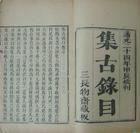 道光二十四年甲辰校刊
集古錄目
三長物齋藏板